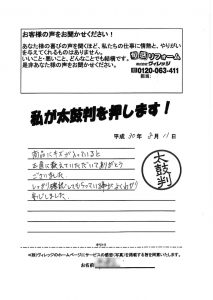 お客様の声をお聞かせください！
あなた様の喜びの声を聞くほど、私たちの仕事に情熱と、やりがい
を与えてくれるものはありません。
いいこと・悪いこと、どんなことでも結構です。
是非あなた様の声をお聞かせください。
リフォーム
株式会社ヴィレッジ
0120-063-411
担当:
私が太鼓判を押します！
平成 30年 8月 11日
商品にキズが入っていると
正直に教えていただいてありがとう
ございました。
しっかり確認してもらっている事がよくわかり
安心しました。
太鼓判
※(株)ヴィレッジのホームページにサービスの感想(写真)を掲載する旨を同意いたします。
お名前